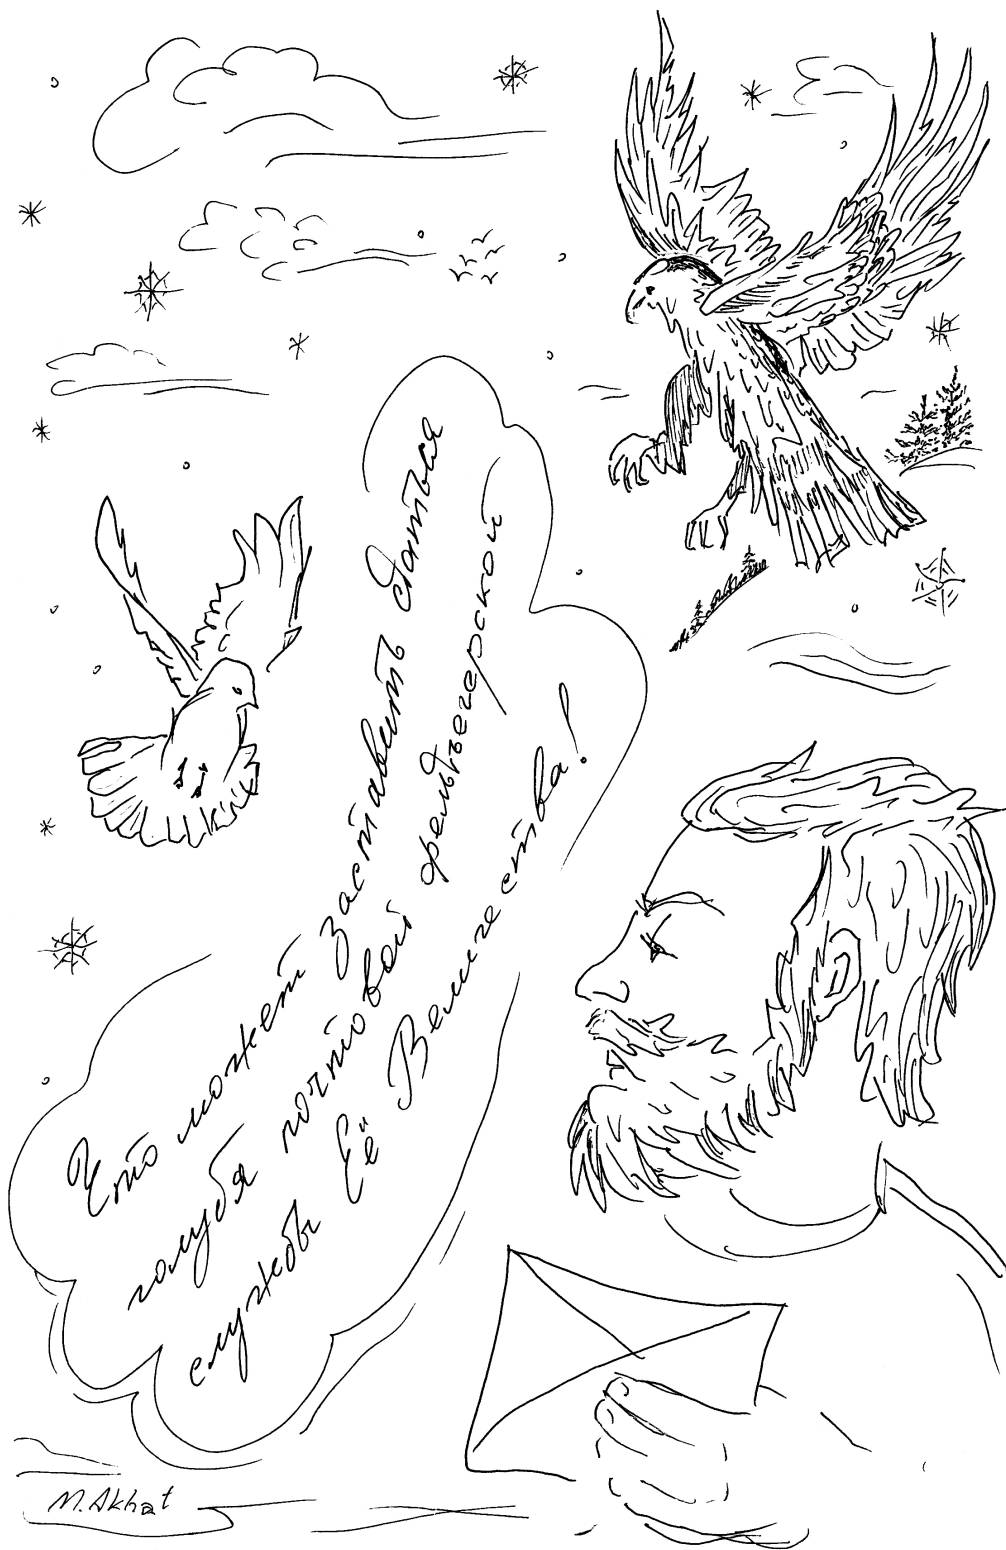 Что может заставить сдаться
голубя почтовой фельдъегерской
службы Её Величества!
M. Akhat